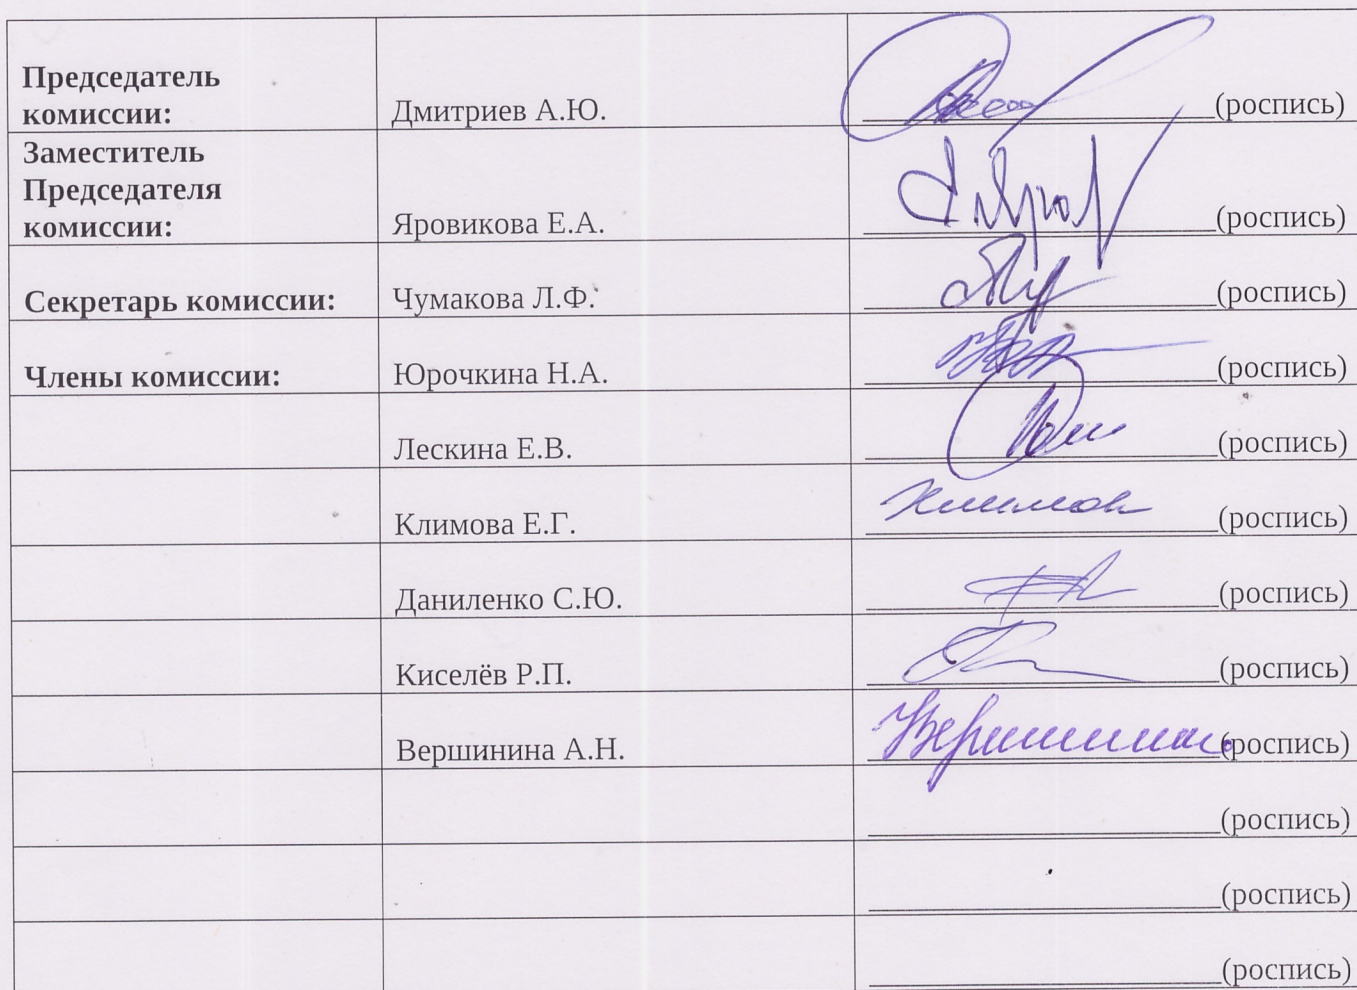 Председатель
комиссии: Дмитриев А.Ю. (роспись)
Заместитель
Председателя
комиссии: Яровикова Е.А. (роспись)
Секретарь комиссии: Чумакова Л.Ф. (роспись)
Члены комиссии: Юрочкина Н.А. (роспись)
Лескина Е.В. (роспись)
Климова Е.Г. (роспись)
Даниленко С.Ю. (роспись)
Киселёв Р.П. (роспись)
Вершинина А.Н. (роспись)
(роспись)
(роспись)
(роспись)